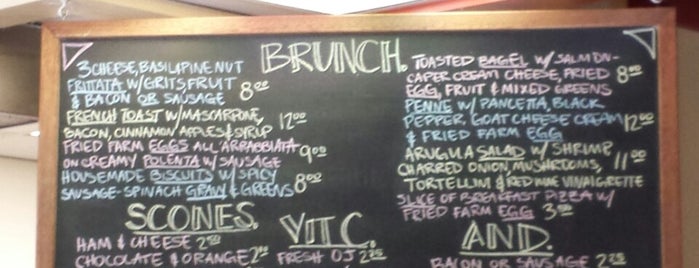 BRUNCH.
3 CHEESE, BASIL & PINE NUT
FRITTATA W/ GRITS, FRUIT
& BACON OR SAUSAGE 8.00
FRENCH TOAST W/ MASCARPONE,
BACON, CINNAMON APPLES & SYRUP 12.00
FRIED FARM EGGS ALL'ARRABBIATA
ON CREAMY POLENTA W/ SAUSAGE 9.00
HOUSEMADE BISCUITS W/ SPICY
SAUSAGE-SPINACH GRAVY & GREENS 8.00
TOASTED BAGEL W/ SALMON-
CAPER CREAM CHEESE, FRIED
EGG, FRUIT & MIXED GREENS 8.00
PENNE W/ PANCETTA, BLACK
PEPPER, GOAT CHEESE CREAM
& FRIED FARM EGG 12.00
ARUGULA SALAD W/ SHRIMP,
CHARRED ONION, MUSHROOMS,
TORTELLINI & RED WINE VINAIGRETTE 11.00
SLICE OF BREAKFAST PIZZA W/
FRIED FARM EGG 3.50
SCONES.
HAM & CHEESE 2.50
CHOCOLATE & ORANGE
VIT C.
FRESH OJ 2.75
AND.
BACON OR SAUSAGE 2.50